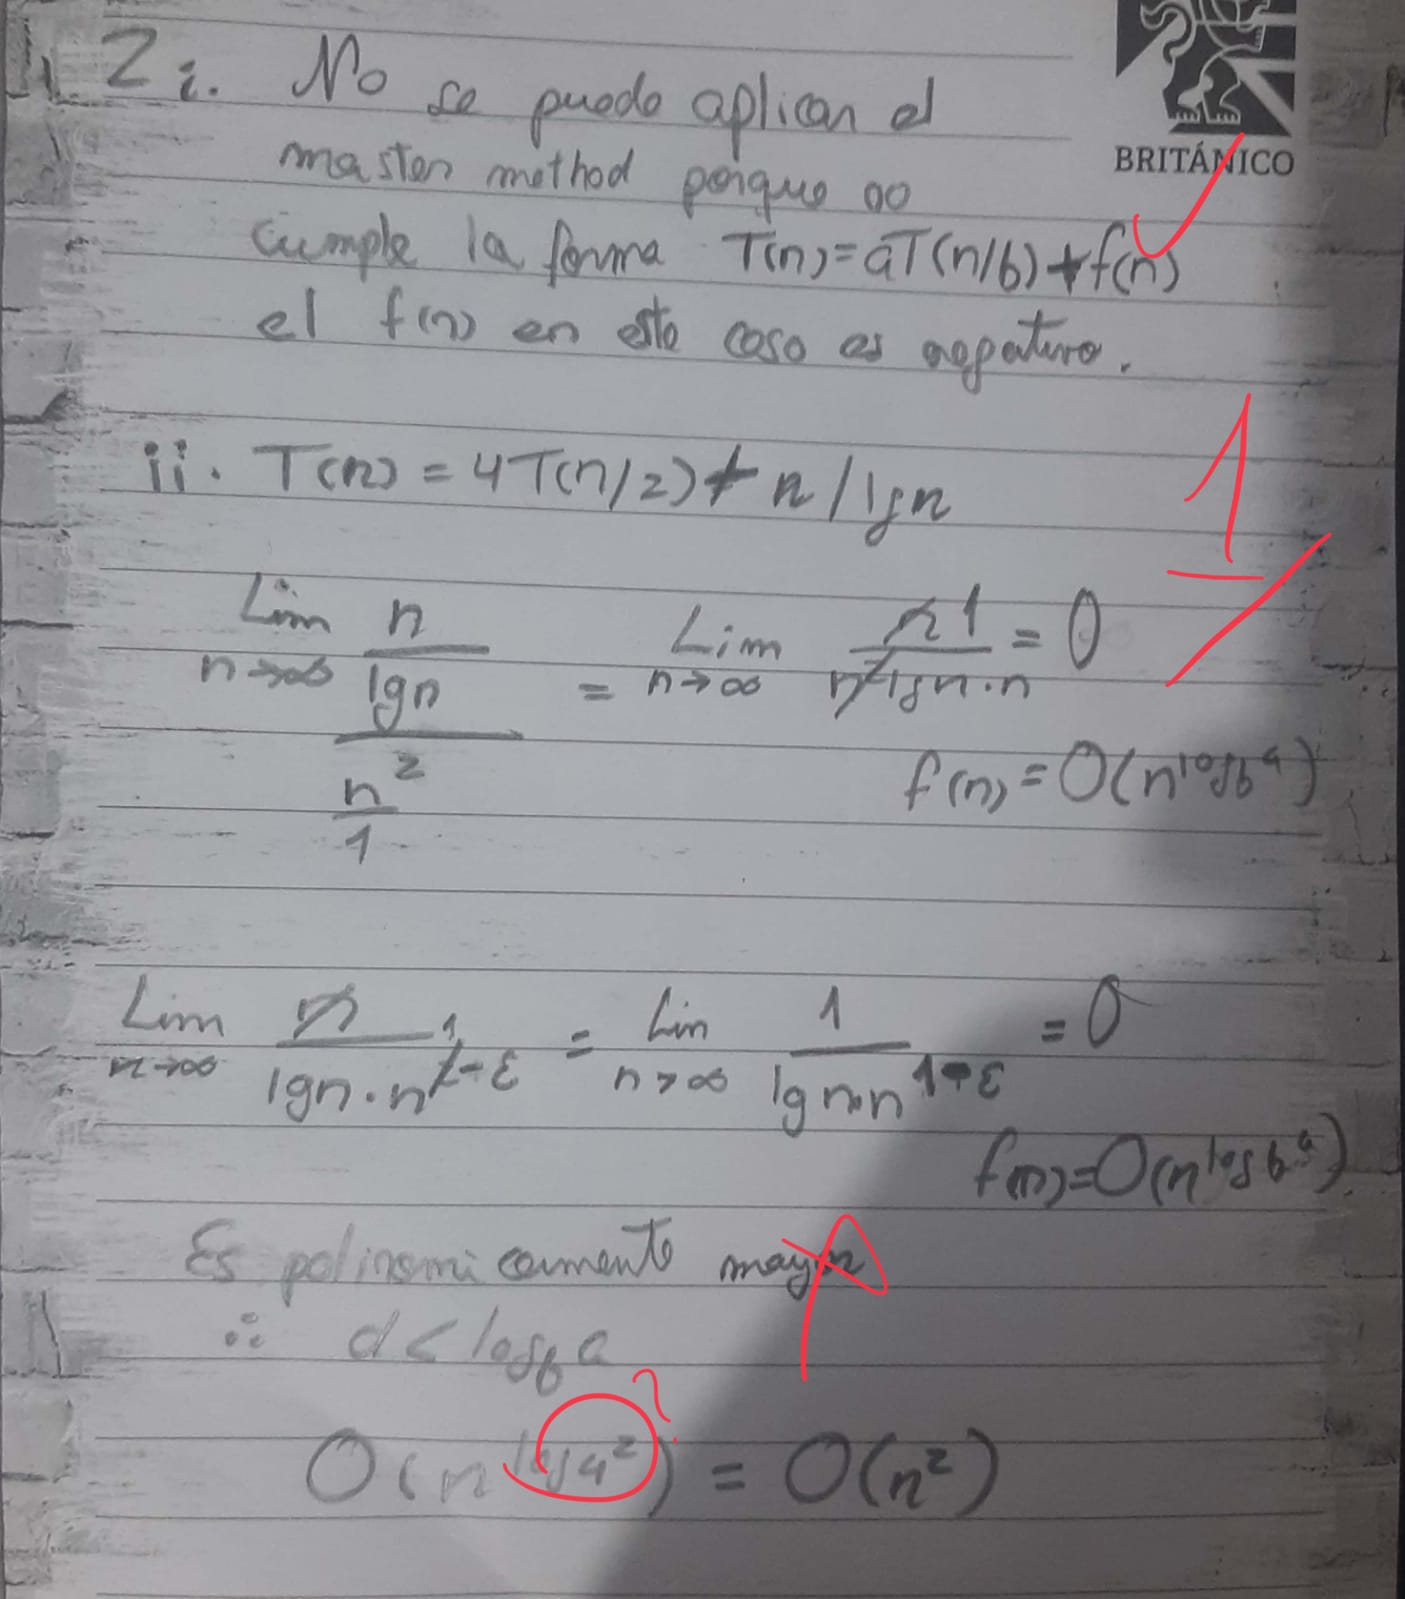 2 i. No se puede aplicar el
BRITÁNICO
master method porque no
cumple la forma T(n)=aT(n/b)+f(n)
el f(n) en este caso es negativo.
ii. T(n) = 4T(n/2)+ n/lgn
1
Lim n→∞ (n/lgn)/(n²/1) = Lim n→∞ n1/(n²lgn.n) = 0
f(n) = O(n^log_b a)
Lim n→∞ n/(lgn.n^2-ε) 1 = Lim n→∞ 1/(lgn.n^1-ε) = 0
f(n)=O(n^log_b a)
Es polinomicamente mayor
∴ d < log_b a
?
O(n^log4²) = O(n²)